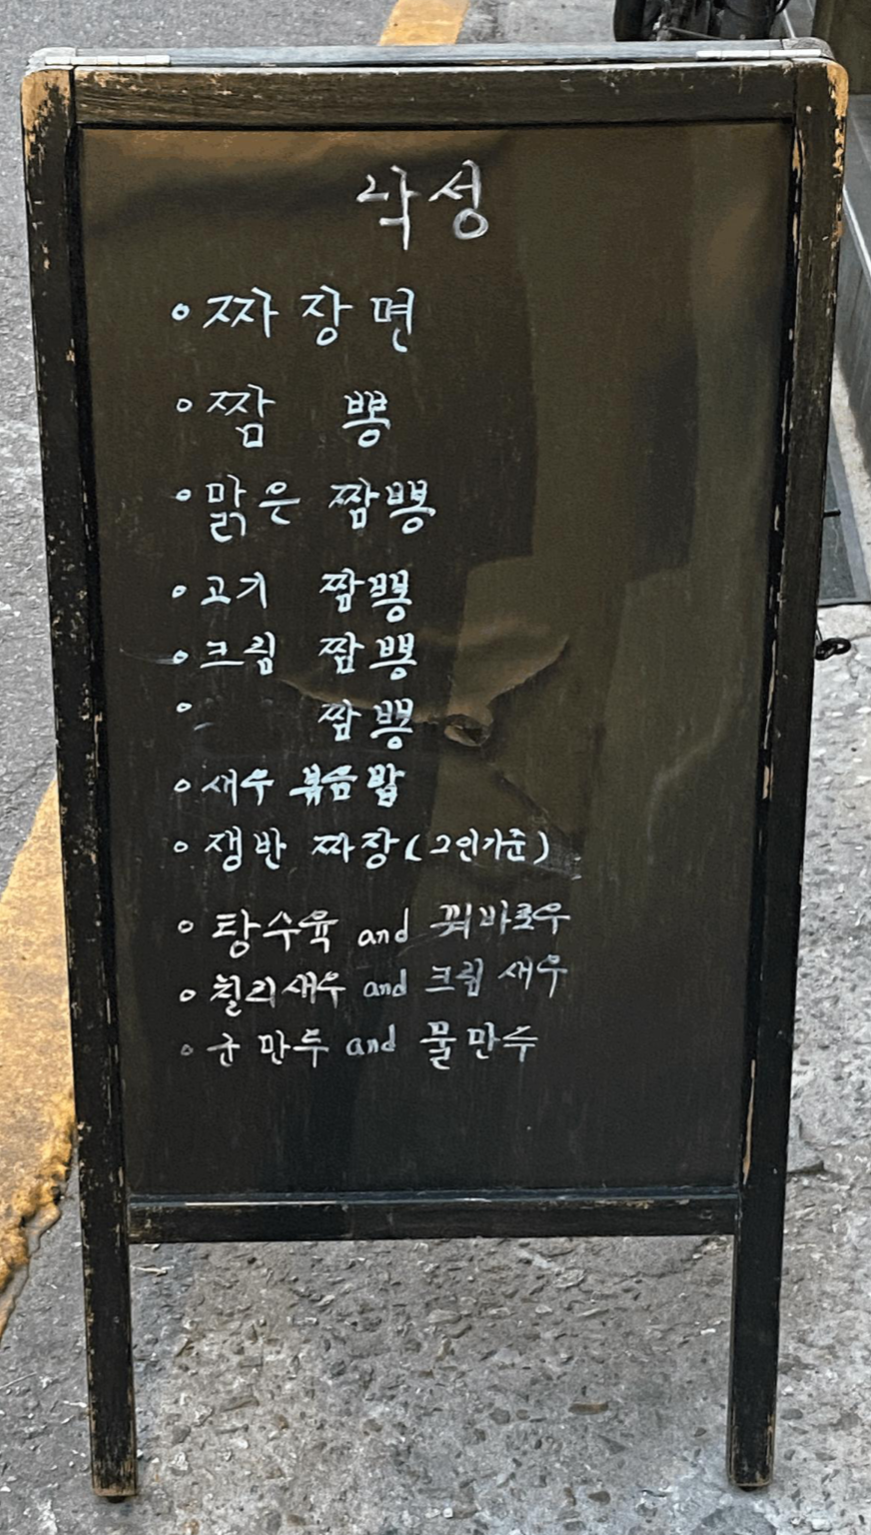 낙성
◦ 짜장면
◦ 짬 뽕
◦ 맑은 짬뽕
◦ 고기 짬뽕
◦ 크림 짬뽕
◦ 짬뽕
◦ 새우 볶음밥
◦ 쟁반 짜장 (2인기준)
◦ 탕수육 and 꿔바로우
◦ 칠리새우 and 크림 새우
◦ 군만두 and 물만두